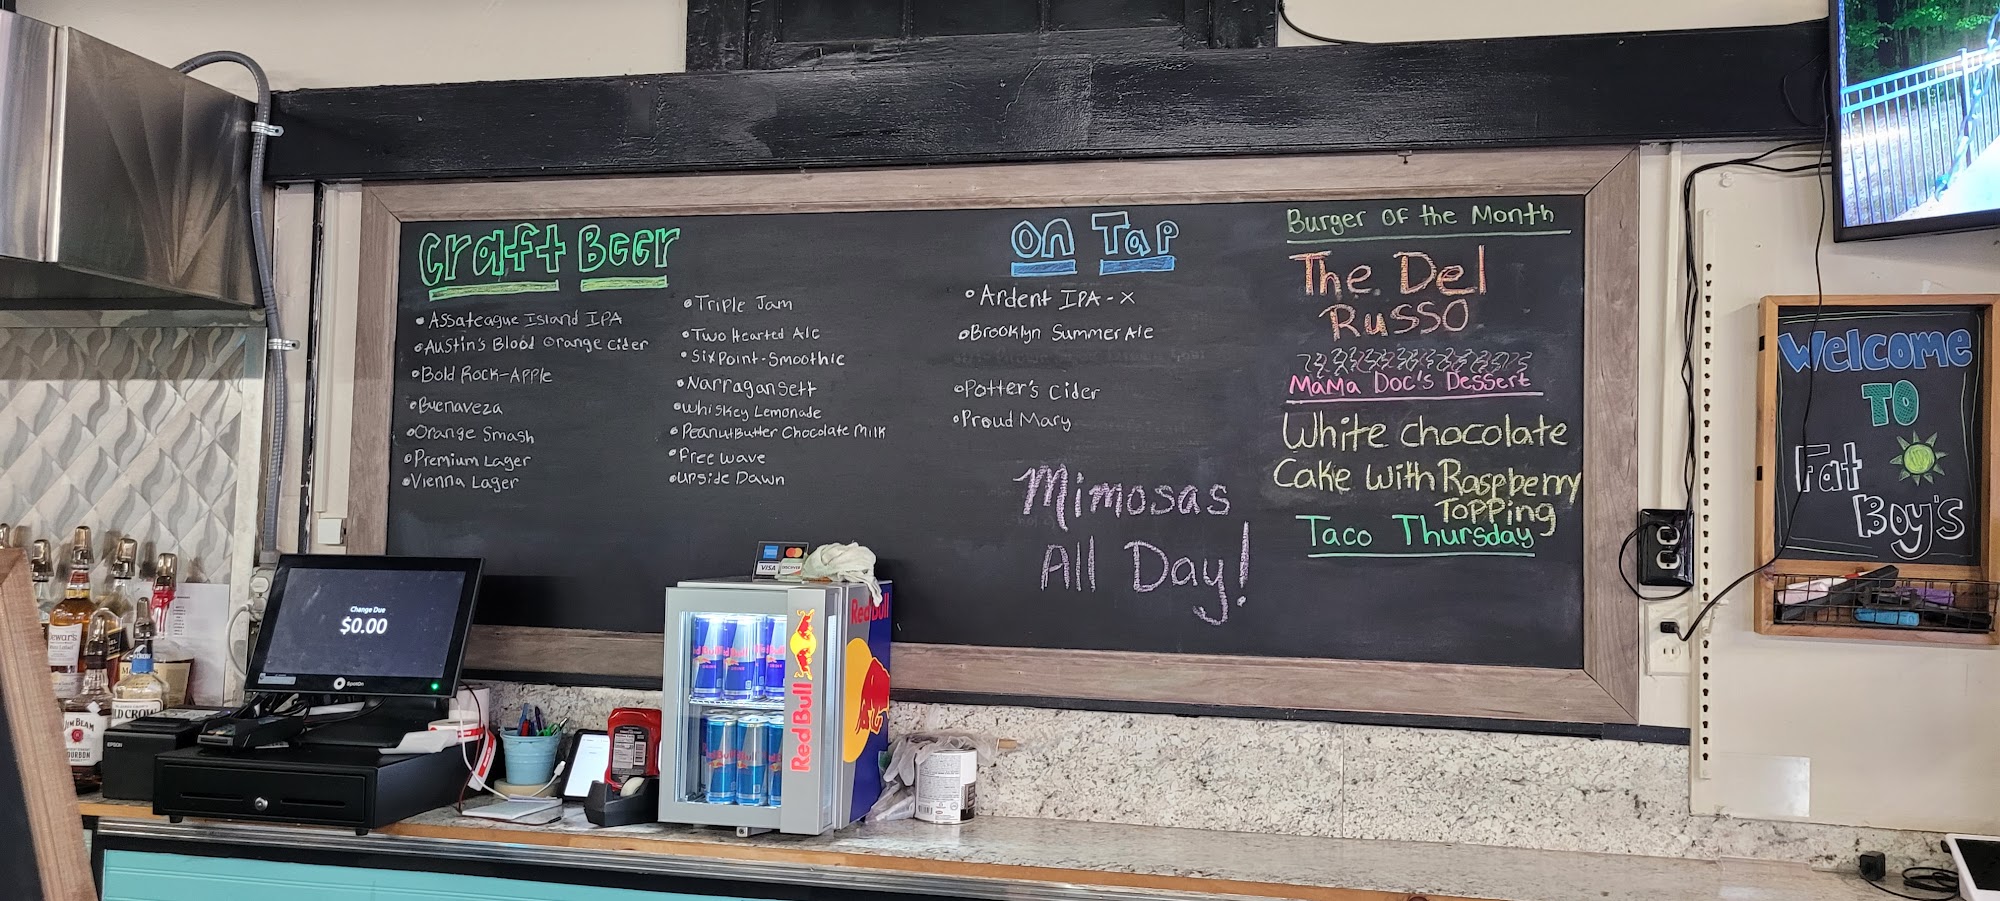 Craft Beer
Assateague Island IPA
Austin's Blood Orange Cider
Bold Rock-Apple
Buenaveza
Orange Smash
Premium Lager
Vienna Lager
Triple Jam
Two Hearted Ale
SixPoint-Smoothie
Narragansett
Whiskey Lemonade
PeanutButter Chocolate Milk
Free wave
Upside Dawn
On Tap
Ardent IPA-X
Brooklyn Summer Ale
Potter's Cider
Proud Mary
Mimosas
All Day!
Burger of the Month
The Del
Russo
Mama Doc's Dessert
White chocolate
Cake with Raspberry
Topping
Taco Thursday
Welcome
To
Fat
Boy's
Change Due
$0.00
SpotOn
EPSON
VISA
DISCOVER
RedBull
Red Bull
JIM BEAM
BOURBON
LD CROW